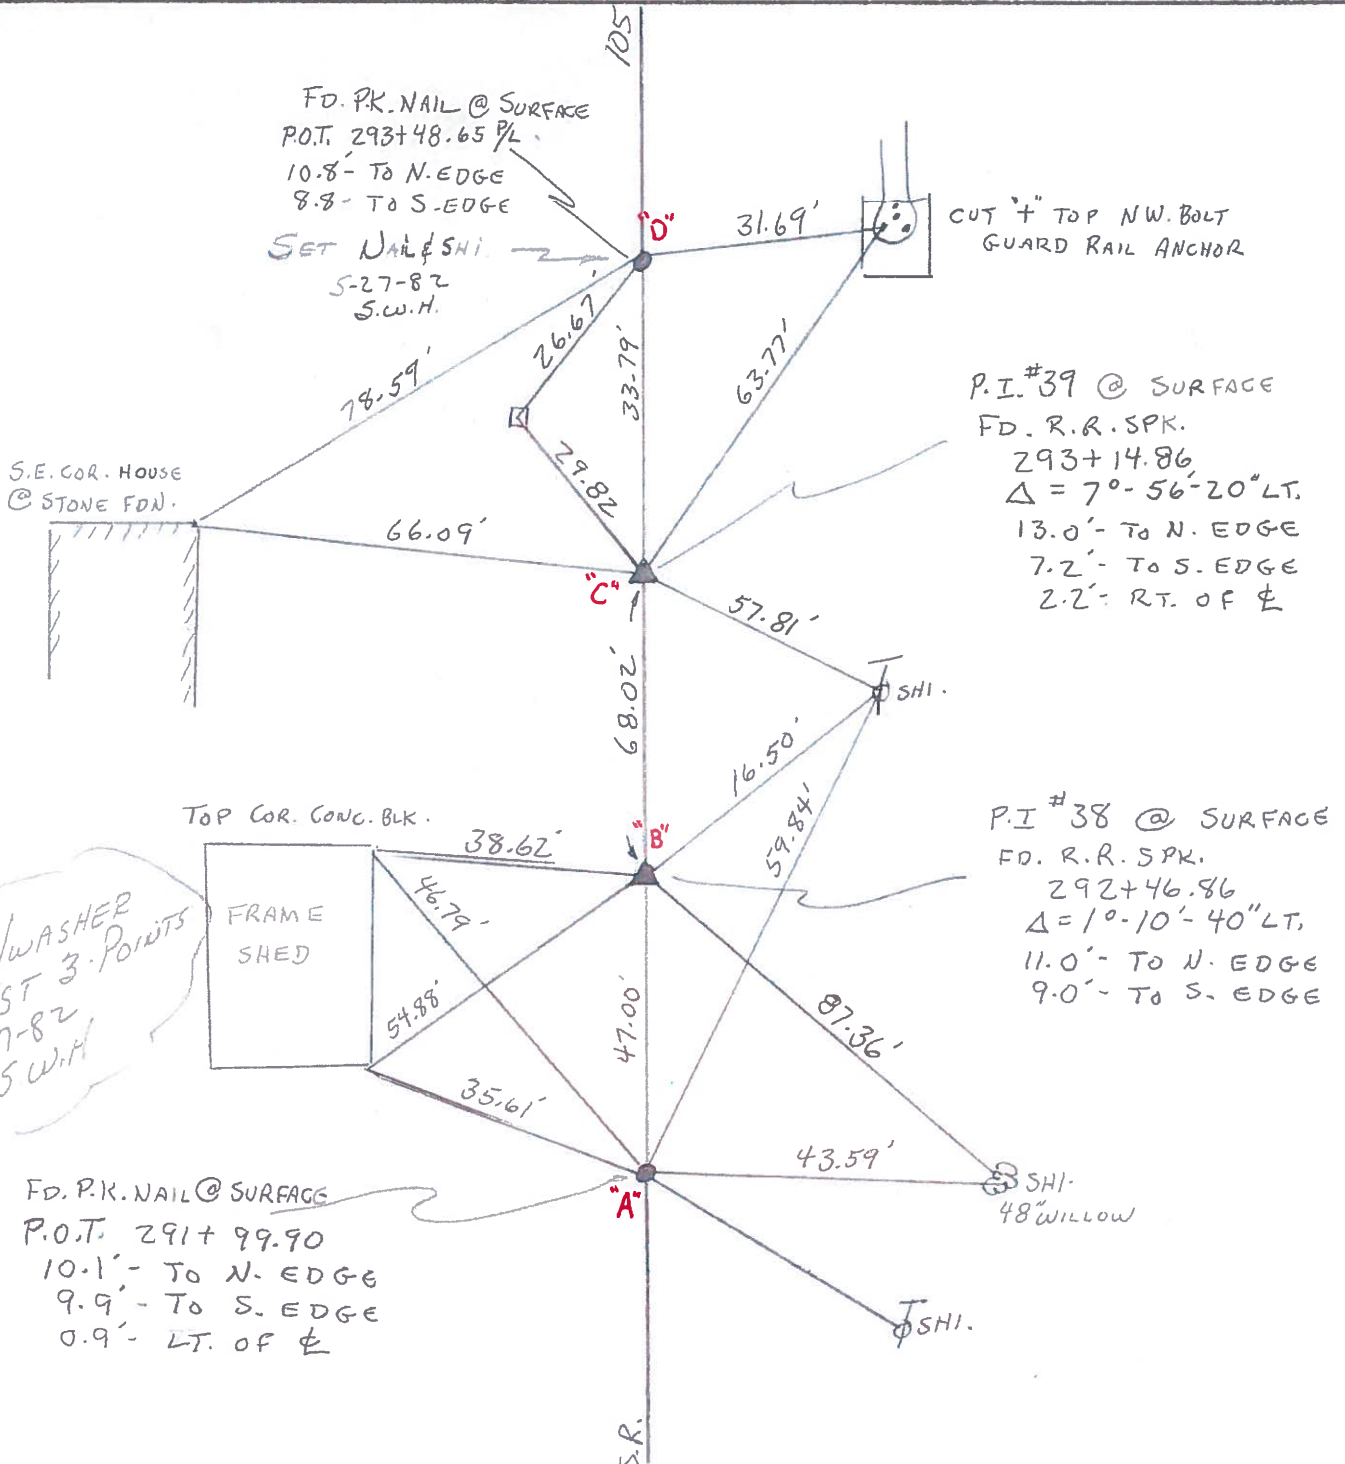 105
FD. P.K. NAIL @ SURFACE
P.O.T. 293+48.65 P/L
10.8'- TO N. EDGE
8.8- TO S. EDGE
SET NAIL & SHI.
5-27-82
S.W.H.
"D"
31.69'
CUT "+" TOP NW. BOLT
GUARD RAIL ANCHOR
26.67'
33.79'
63.77'
78.59'
29.82
P.I. #39 @ SURFACE
FD. R.R. SPK.
293+14.86
Δ = 7°-56'-20" LT.
13.0'- TO N. EDGE
7.2'- TO S. EDGE
2.2'- RT. OF ℄
S.E. COR. HOUSE
@ STONE FDN.
66.09'
"C"
57.81'
SHI.
68.02'
16.50'
59.84'
TOP COR. CONC. BLK.
38.62'
"B"
46.79'
FRAME
SHED
54.88'
47.00'
87.36'
P.I #38 @ SURFACE
FD. R.R. SPK.
292+46.86
Δ = 1°-10'-40" LT.
11.0'- TO N. EDGE
9.0'- TO S. EDGE
/WASHER
ST 3-POINTS
7-82
S.W.H
35.61'
43.59'
SHI.
48" WILLOW
"A"
FD. P.K. NAIL @ SURFACE
P.O.T. 291+99.90
10.1'- TO N. EDGE
9.9'- TO S. EDGE
0.9'- LT. OF ℄
SHI.
S.R.